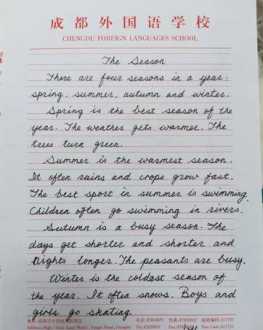 成都外国语学校
CHENGDU FOREIGN LANGUAGES SCHOOL
The Season
There are four seasons in a year:
spring, summer, autumn and winter.
Spring is the best season of the
year. The weather gets warmer. The
trees turn green.
Summer is the warmest season.
It often rains and crops grow fast.
The best sport in summer is swimming.
Children often go swimming in rivers.
Autumn is a busy season. The
days get shorter and shorter and
nights longer. The peasants are busy.
Winter is the coldest season of
the year. It often snows. Boys and
girls go skating.